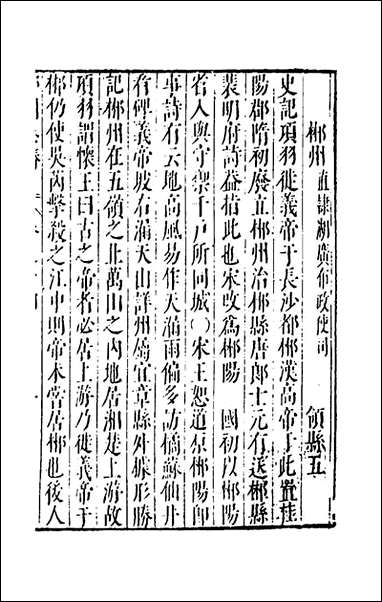 郴州 直隸湖廣布政使司 領縣五
史記項羽徙義帝于長沙都郴漢高帝于此置桂
陽郡隋初廢立郴州治郴縣唐郎士元有送郴縣
裴明府詩益指此也宋改爲郴陽 國初以郴陽
省入與守禦千戶所同城〇宋王恕道京郴陽即
事詩有云地高風易作天漏雨偏多訪橘蘇仙井
存碑義帝坡右漏天山詳州扃宜章縣外據形勝
記郴州在五領之北萬山之內地居湘楚上游故
項羽謂懷王曰古之帝者必居上游乃徙義帝于
郴仍使吳芮擊殺之江中則帝未嘗居郴也後人